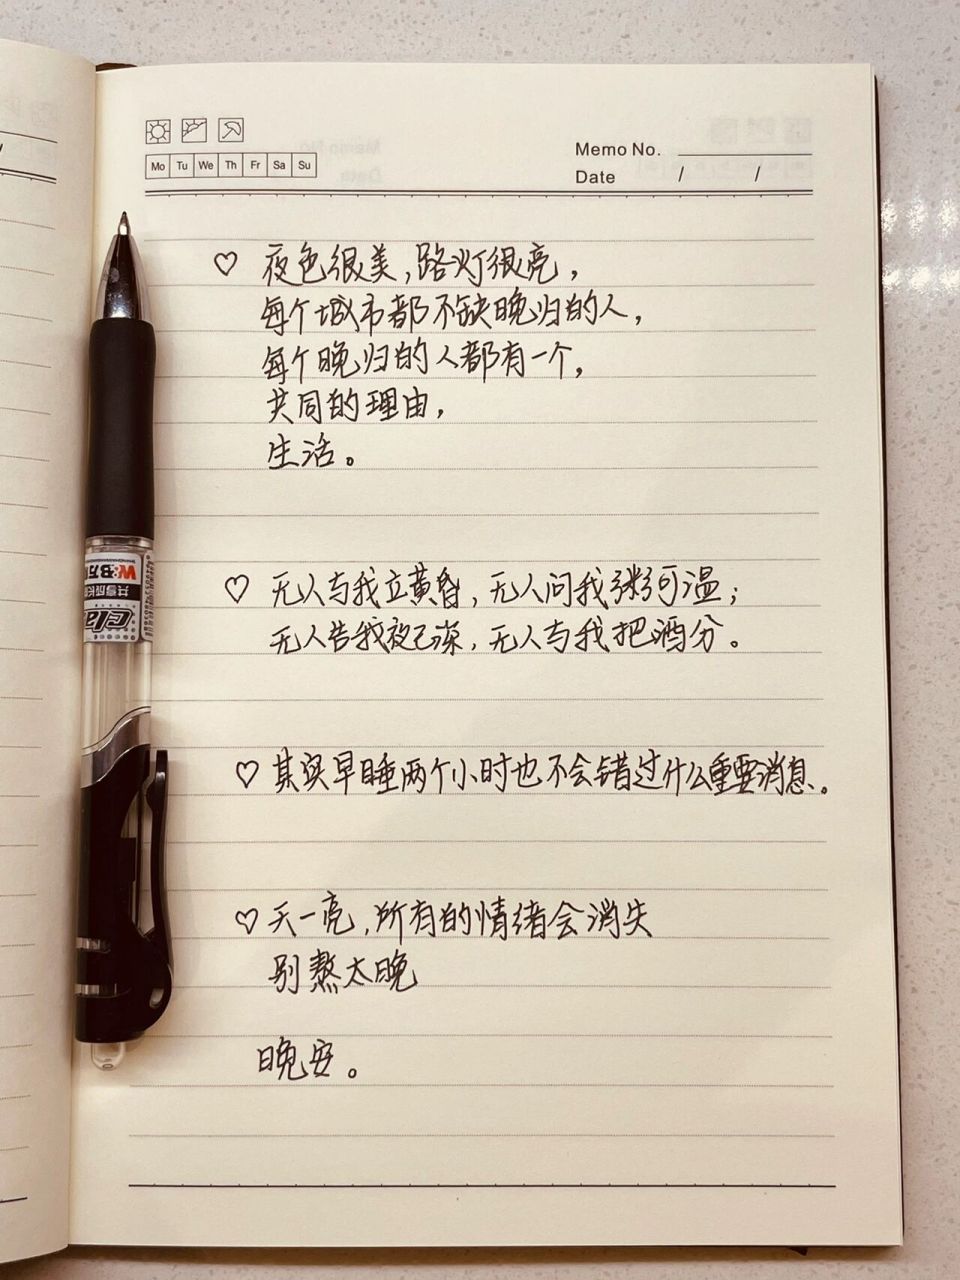 Memo No.
Mo Tu We Th Fr Sa Su
Date / /
♡ 夜色很美,路灯很亮,
每个城市都不缺晚归的人,
每个晚归的人都有一个,
共同的理由,
生活。
♡ 无人与我立黄昏,无人问我粥可温;
无人告我夜已深,无人与我把酒分。
♡ 其实早睡两个小时也不会错过什么重要消息。
♡ 天一亮,所有的情绪会消失
别熬太晚
晚安。